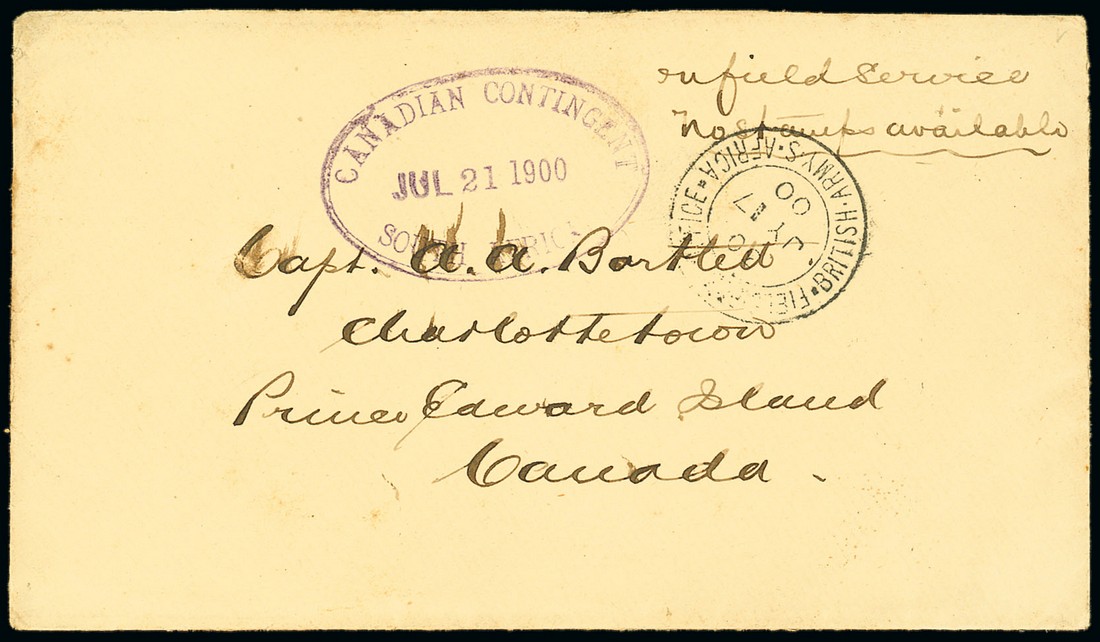 on field service
"no stamps available
CANADIAN CONTINGENT
JUL 21 1900
SOUTH AFRICA
BRITISH·ARMY·S·AFRICA
JY
00
Capt. A. A. Bartlett
Charlottetown
Prince Edward Island
Canada